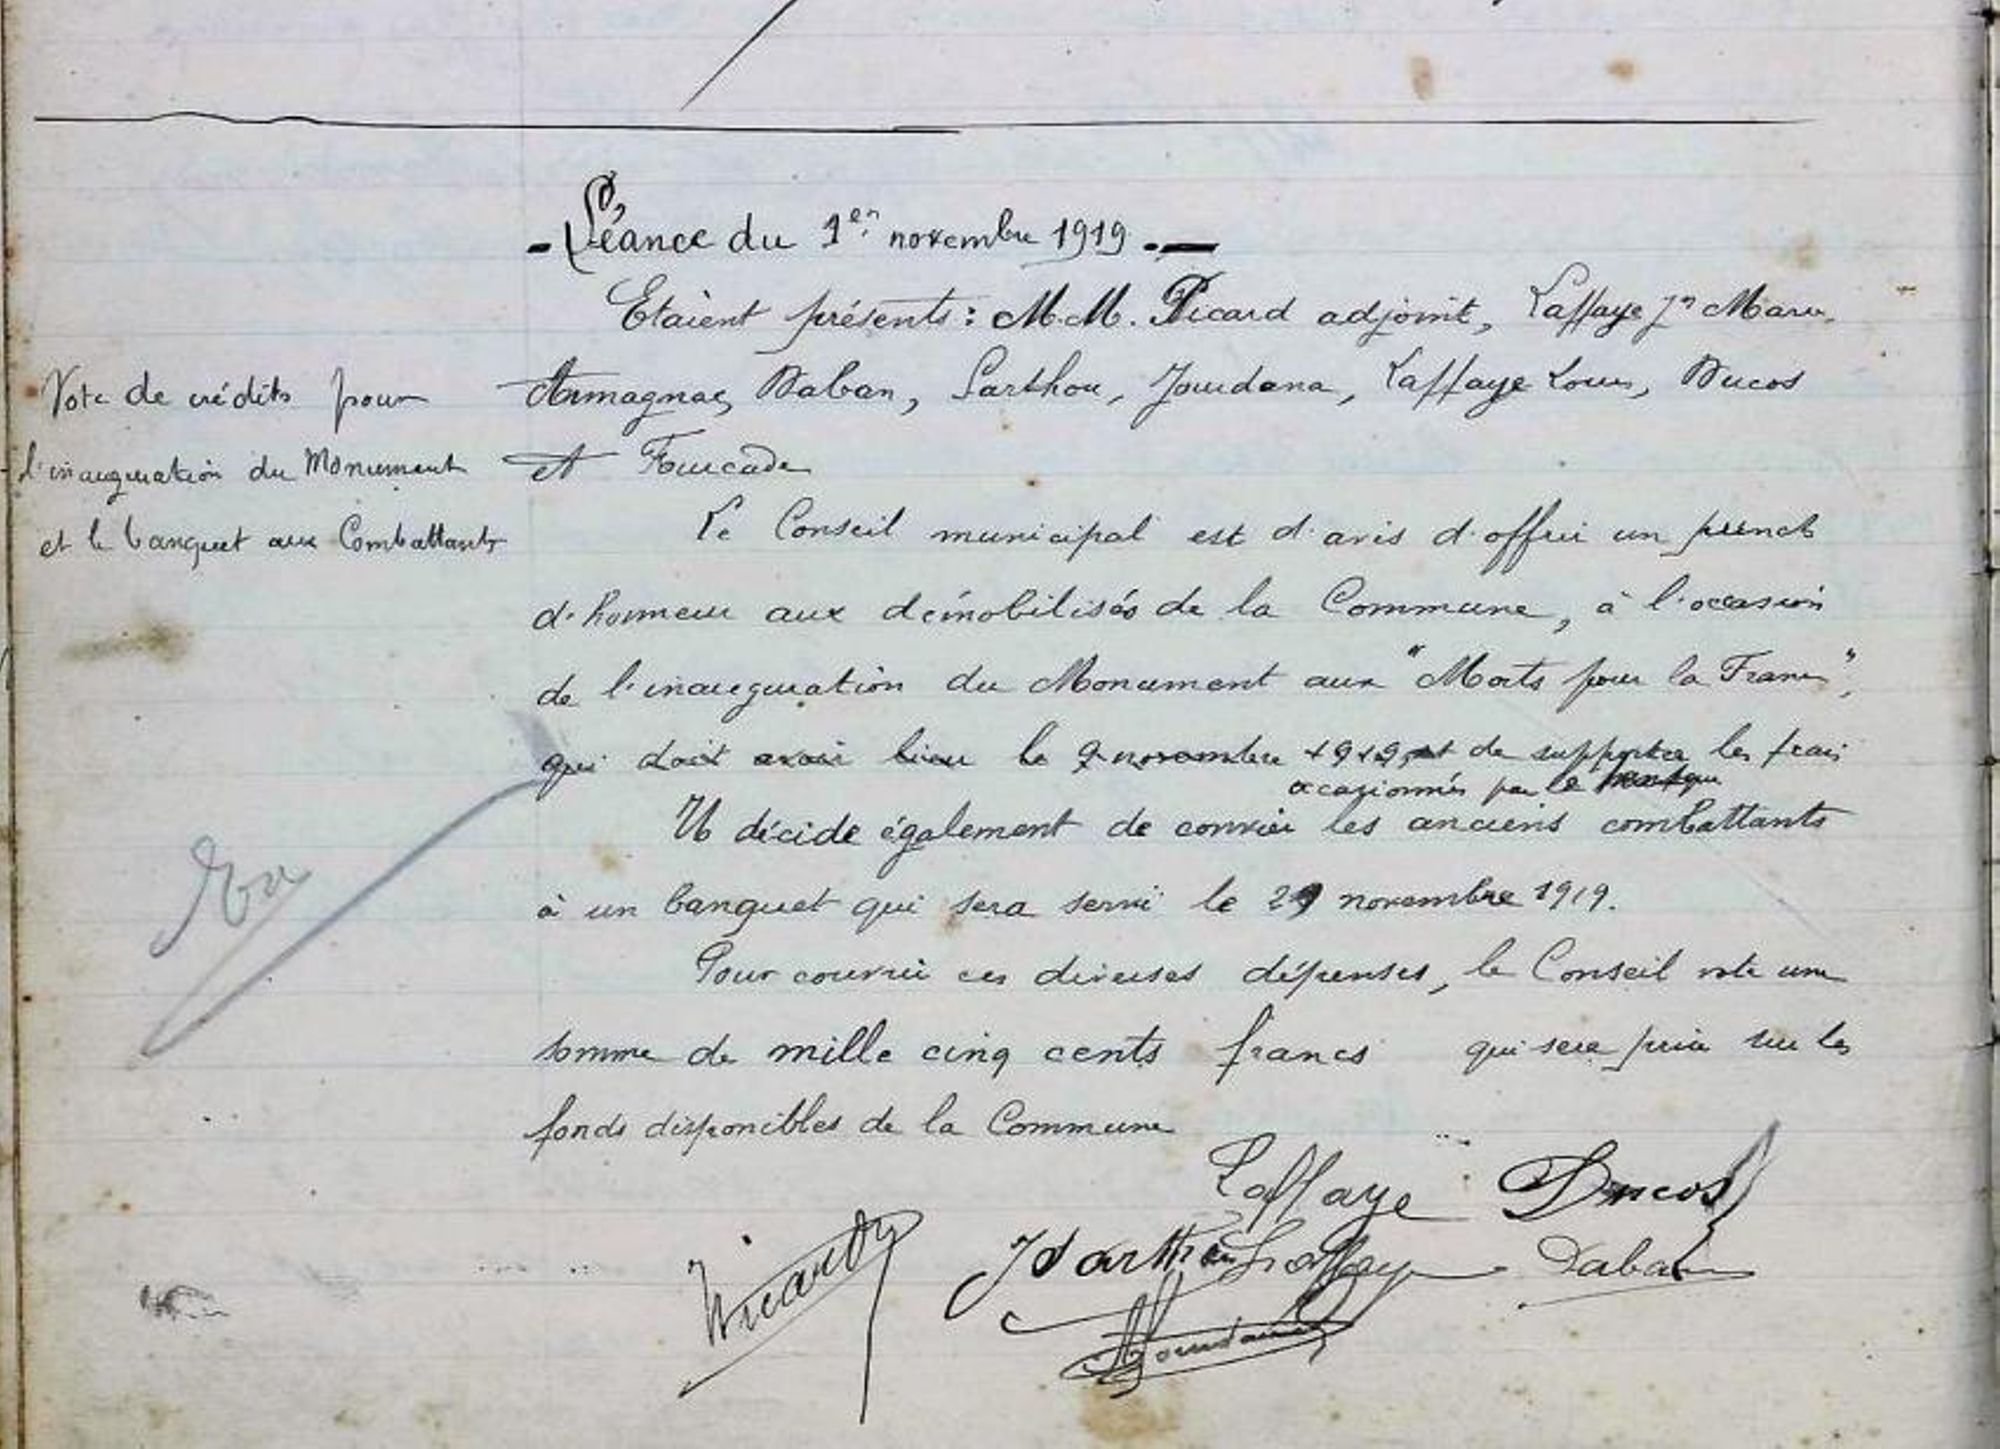 - Séance du 1er novembre 1919. -
Etaient présents : M.M. Picard adjoint, Laffaye Jn Marie
Armagnac, Daban, Sarthou, Jourdana, Laffaye Louis, Ducos
et Fourcade
Vote de crédits pour
l'inauguration du Monument
et le banquet aux Combattants
Le Conseil municipal est d'avis d'offrir un punch
d'honneur aux démobilisés de la Commune, à l'occasion
de l'inauguration du Monument aux "Morts pour la France",
qui doit avoir lieu le 9 novembre 1919, et de supporter les frais
occasionnés par le
Il décide également de convier les anciens combattants
à un banquet qui sera servi le novembre 1919.
Pour couvrir ces diverses dépenses, le Conseil vote une
somme de mille cinq cents francs qui sera prise sur les
fonds disponibles de la Commune
Laffaye Ducos
Picard Sarthou Laffaye Daban
Jourdana